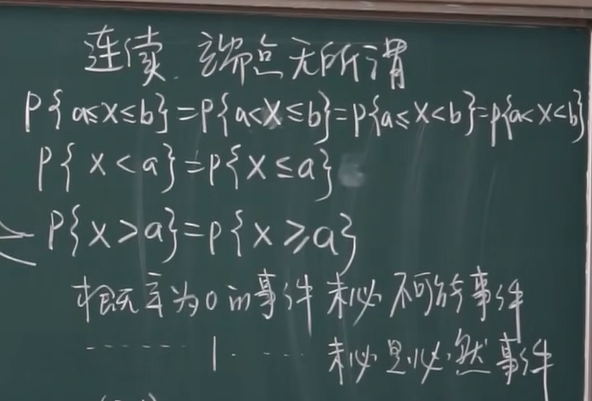 连续 端点无所谓
P{a≤X≤b}=P{a<X≤b}=P{a≤X<b}=P{a<X<b}
P{X<a}=P{X≤a}
P{X>a}=P{X≥a}
概率为0的事件未必不可能事件
……1……未必是必然事件